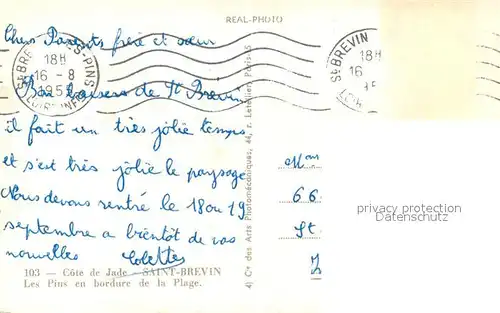 REAL-PHOTO
Chers Parents frère et sœur
Bon baisers de St Brévin
il fait un très jolie temps
et s'est très jolie le paysage
Nous devons rentré le 18 ou 19
septembre a bientôt de vos
nouvelles Colette
103 — Côte de Jade - SAINT-BREVIN
Les Pins en bordure de la Plage.
Cie des Arts Photomécaniques, 44, r. Letellier, Paris-15
ST BREVIN-LES-PINS
18H
16 - 8
LOIRE INFRE
ST BREVIN
18H
16
66
St
privacy protection
Datenschutz